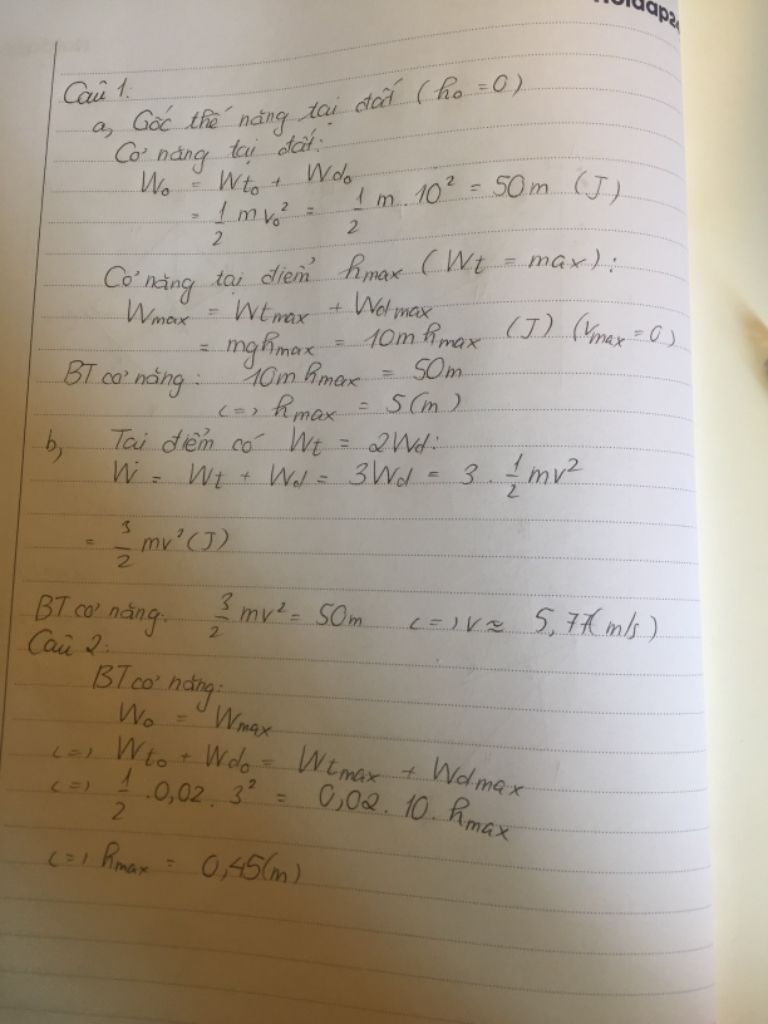 Hoidap24
Câu 1:
a, Gốc thế năng tại đất (h₀ = 0)
Cơ năng tại đất:
W₀ = Wt₀ + Wđ₀
= 1/2 mv₀² = 1/2 m . 10² = 50m (J)
Cơ năng tại điểm hmax (Wt = max):
Wmax = Wtmax + Wdmax
= mghmax = 10m hmax (J) (Vmax = 0)
BT cơ năng: 10m hmax = 50m
<=> hmax = 5(m)
b, Tại điểm có Wt = 2Wd:
W = Wt + Wd = 3Wd = 3 . 1/2 mv²
= 3/2 mv² (J)
BT cơ năng: 3/2 mv² = 50m <=> v ≈ 5,77(m/s)
Câu 2:
BT cơ năng:
W₀ = Wmax
<=> Wt₀ + Wd₀ = Wtmax + Wdmax
<=> 1/2 . 0,02 . 3² = 0,02 . 10 . hmax
<=> hmax = 0,45(m)